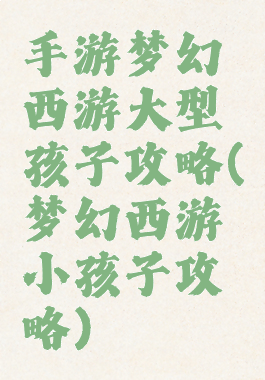 手游梦幻
西游大型
孩子攻略(
梦幻西游
小孩子攻
略)